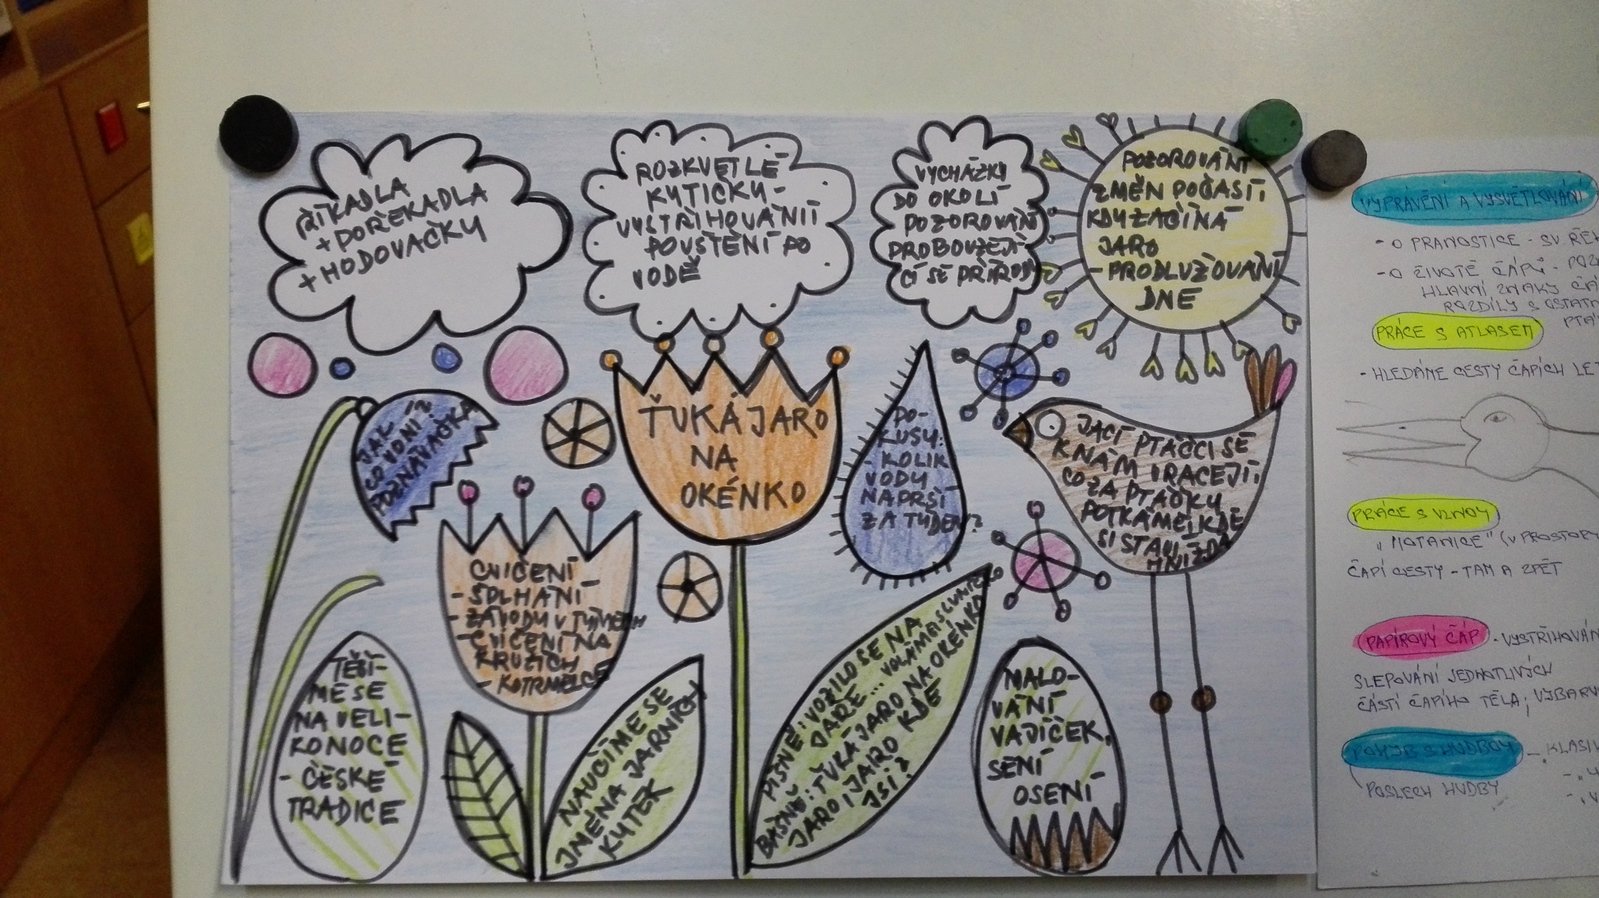 ŘÍKADLA
+ POŘEKADLA
+ HODOVAČKY
ROZKVETLÉ
KYTIČKY-
VYSTŘIHOVÁNÍ
POUŠTĚNÍ PO
VODĚ
VYCHÁZKY
DO OKOLÍ
POZOROVÁNÍ
PROBOUZEJÍ
CÍ SE PŘÍRODY
POZOROVÁNÍ
ZMĚN POČASÍ
KDY ZAČÍNÁ
JARO
- PRODLUŽOVÁNÍ
DNE
JAK
CO VONÍ?
POZNÁVAČKA
ŤUKÁ JARO
NA
OKÉNKO
PO-
KUSY:
- KOLIK
VODY
NAPRŠÍ
ZA TÝDEN?
JACÍ PTÁČCI SE
K NÁM VRACEJÍ,
CO ZA PTÁČKY
POTKÁME, KDE
SI STAVÍ
HNÍZDA
CVIČENÍ
- ŠPLHÁNÍ
- ZÁVODY V TÝMECH
- CVIČENÍ NA
KRUZÍCH
- KOTRMELCE
TĚŠÍ-
ME SE
NA VELI-
KONOCE
- ČESKÉ
TRADICE
NAUČÍME SE
JMÉNA JARNÍCH
KYTEK
PÍSNĚ: VOZILO SE NA
JAŘE... VOLÁME SLUNÍČKO
BÁSNĚ: ŤUKÁ JARO NA OKÉNKO
JARO, JARO KDE
JSI?
MALO-
VÁNÍ
VAJÍČEK,
SETÍ
OSENÍ
VYPRÁVĚNÍ A VYSVĚTLOVÁNÍ
- O PRANOSTICE - SV. ŘEH
- O ŽIVOTĚ ČÁPŮ - POZ
HLAVNÍ ZNAKY ČÁ
ROZDÍLY S OSTATN
PTÁ
PRÁCE S ATLASEM
- HLEDÁME CESTY ČAPÍCH LET
PRÁCE S VLNOU
"MOTANICE" (V PROSTORY
ČAPÍ CESTY - TAM A ZPĚT
PAPÍROVÝ ČÁP - VYSTŘIHOVÁN
SLEPOVÁNÍ JEDNOTLIVÝCH
ČÁSTÍ ČAPÍHO TĚLA; VYBARV
POHYB S HUDBOU - KLASIK
POSLECH HUDBY